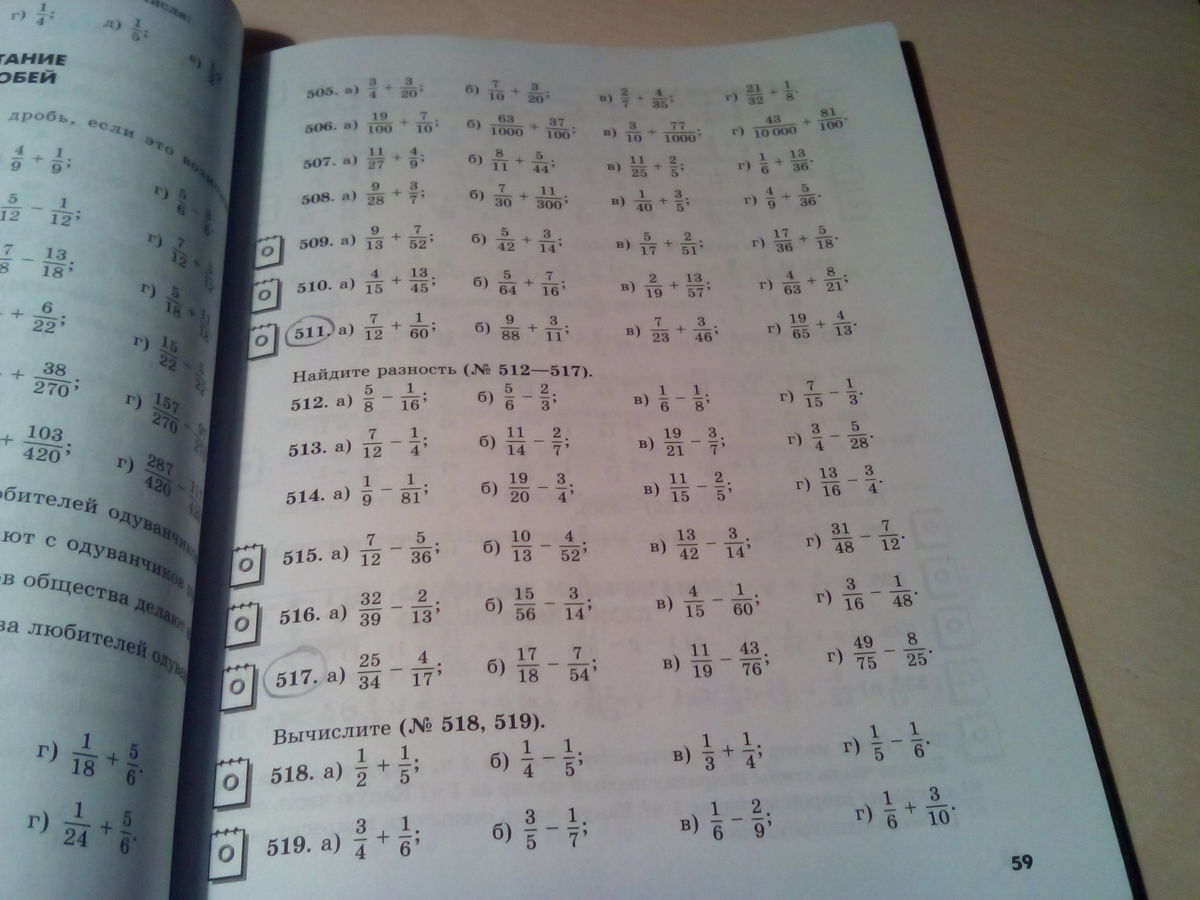 г) 1/4; д) 1/5;
ТАНИЕ
ОБЕЙ
дробь, если это
4/9 + 1/9;
г) 5/6 − 3/6.
5/12 − 1/12;
г) 7/12 +
7/8 − 13/18;
г) 5/18 + 11/18.
+ 6/22;
г) 15/22 − 5/22.
+ 38/270;
г) 157/270 −
+ 103/420;
г) 287/420 −
юбителей одуванчиков
ают с одуванчиков
ов общества делают
ва любителей
г) 1/18 + 5/6.
г) 1/24 + 5/6.
505. а) 3/4 + 3/20; б) 7/10 + 3/20; в) 2/7 + 4/35; г) 21/32 + 1/8.
506. а) 19/100 + 7/10; б) 63/1000 + 37/100; в) 3/10 + 77/1000; г) 43/10 000 + 81/100.
507. а) 11/27 + 4/9; б) 8/11 + 5/44; в) 11/25 + 2/5; г) 1/6 + 13/36.
508. а) 9/28 + 3/7; б) 7/30 + 11/300; в) 1/40 + 3/5; г) 4/9 + 5/36.
509. а) 9/13 + 7/52; б) 5/42 + 3/14; в) 5/17 + 2/51; г) 17/36 + 5/18.
510. а) 4/15 + 13/45; б) 5/64 + 7/16; в) 2/19 + 13/57; г) 4/63 + 8/21.
511. а) 7/12 + 1/60; б) 9/88 + 3/11; в) 7/23 + 3/46; г) 19/65 + 4/13.
Найдите разность (№ 512—517).
512. а) 5/8 − 1/16; б) 5/6 − 2/3; в) 1/6 − 1/8; г) 7/15 − 1/3.
513. а) 7/12 − 1/4; б) 11/14 − 2/7; в) 19/21 − 3/7; г) 3/4 − 5/28.
514. а) 1/9 − 1/81; б) 19/20 − 3/4; в) 11/15 − 2/5; г) 13/16 − 3/4.
515. а) 7/12 − 5/36; б) 10/13 − 4/52; в) 13/42 − 3/14; г) 31/48 − 7/12.
516. а) 32/39 − 2/13; б) 15/56 − 3/14; в) 4/15 − 1/60; г) 3/16 − 1/48.
517. а) 25/34 − 4/17; б) 17/18 − 7/54; в) 11/19 − 43/76; г) 49/75 − 8/25.
Вычислите (№ 518, 519).
518. а) 1/2 + 1/5; б) 1/4 − 1/5; в) 1/3 + 1/4; г) 1/5 − 1/6.
519. а) 3/4 + 1/6; б) 3/5 − 1/7; в) 1/6 − 2/9; г) 1/6 + 3/10.
59